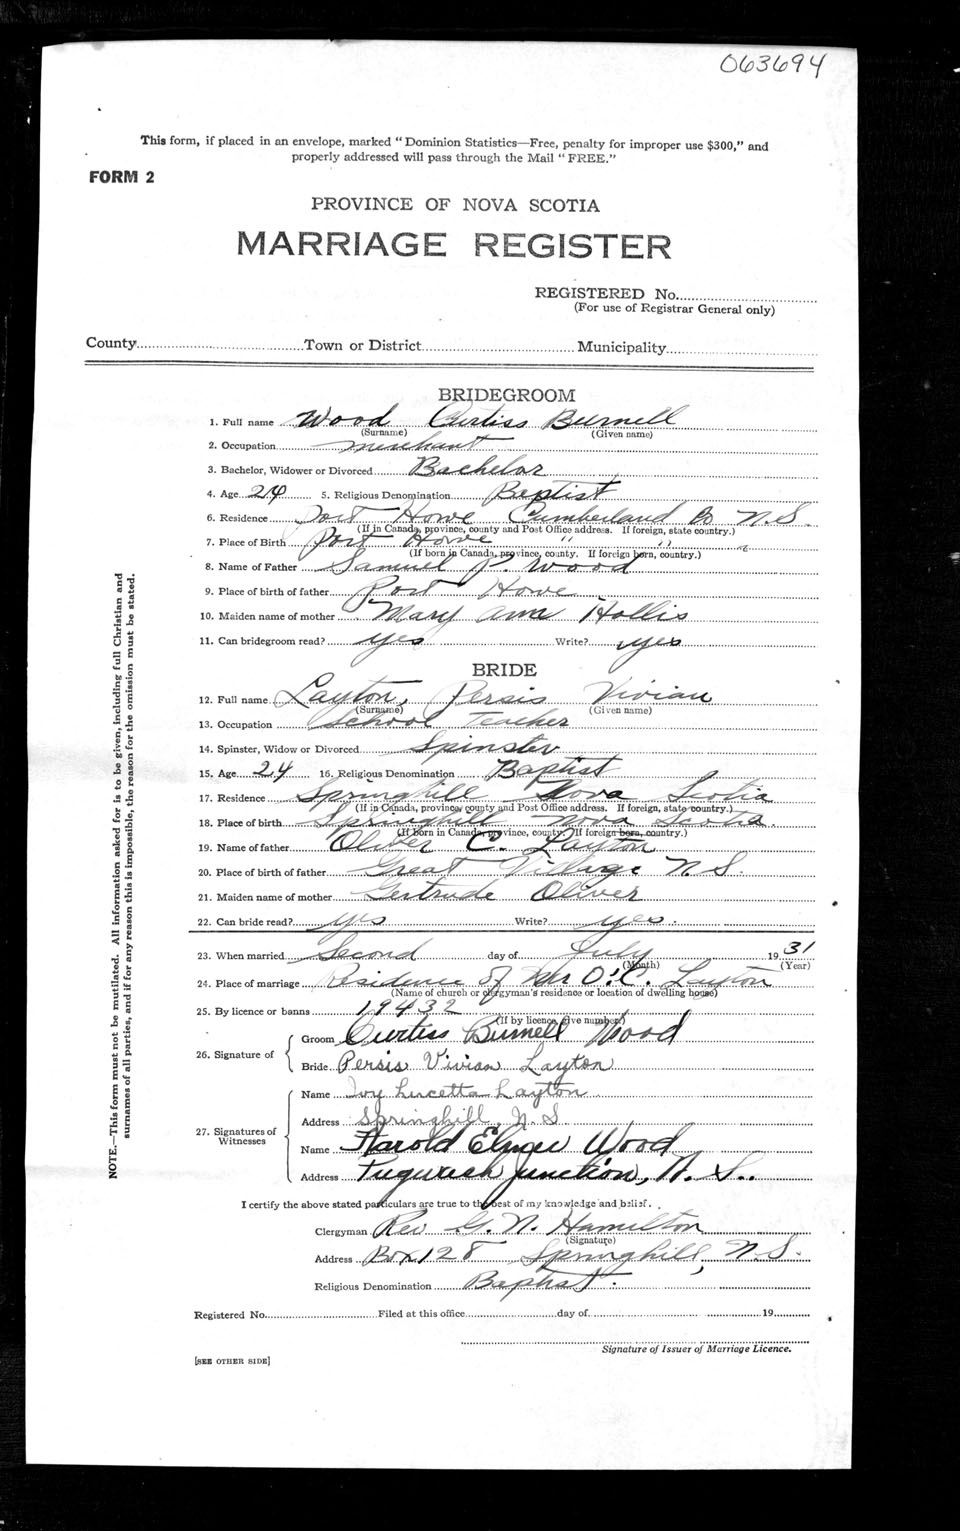 063694
This form, if placed in an envelope, marked "Dominion Statistics—Free, penalty for improper use $300," and
properly addressed will pass through the Mail "FREE."
FORM 2
PROVINCE OF NOVA SCOTIA
MARRIAGE REGISTER
REGISTERED No.
(For use of Registrar General only)
County Town or District Municipality
BRIDEGROOM
1. Full name Wood Curtiss Burnell
(Surname) (Given name)
2. Occupation merchant
3. Bachelor, Widower or Divorced Bachelor
4. Age 24 5. Religious Denomination Baptist
6. Residence Port Howe Cumberland Co N.S.
(If in Canada, province, county and Post Office address. If foreign, state country.)
7. Place of Birth Port Howe " " "
(If born in Canada, province, county. If foreign born, country.)
8. Name of Father Samuel P. Wood
9. Place of birth of father Port Howe
10. Maiden name of mother Mary Ann Hollis
11. Can bridegroom read? yes Write? yes
BRIDE
12. Full name Layton, Persis Vivian
(Surname) (Given name)
13. Occupation School Teacher
14. Spinster, Widow or Divorced Spinster
15. Age 24 16. Religious Denomination Baptist
17. Residence Springhill Nova Scotia
(If in Canada, province, county and Post Office address. If foreign, state country.)
18. Place of birth Springhill Nova Scotia.
(If born in Canada, province, county. If foreign born, country.)
19. Name of father Oliver C. Layton
20. Place of birth of father Great Village N.S.
21. Maiden name of mother Gertrude Oliver
22. Can bride read? yes Write? yes.
23. When married Second day of July 1931
(Month) (Year)
24. Place of marriage Residence of Mr O.C. Layton
(Name of church or clergyman's residence or location of dwelling house)
25. By licence or banns 19432
(If by licence, give number.)
26. Signature of
Groom Curtiss Burnell Wood
Bride Persis Vivian Layton
27. Signatures of Witnesses
Name Ivy Lucetta Layton
Address Springhill, N.S
Name Harold Elmer Wood
Address Junction, N.S.
I certify the above stated particulars are true to the best of my knowledge and belief.
Clergyman Rev G. N. Hamilton
(Signature)
Address Box 128 Springhill, N.S.
Religious Denomination Baptist.
Registered No. Filed at this office day of 19
Signature of Issuer of Marriage Licence.
[SEE OTHER SIDE]
NOTE.—This form must not be mutilated. All information asked for is to be given, including full Christian and
surnames of all parties, and if for any reason this is impossible, the reason for the omission must be stated.